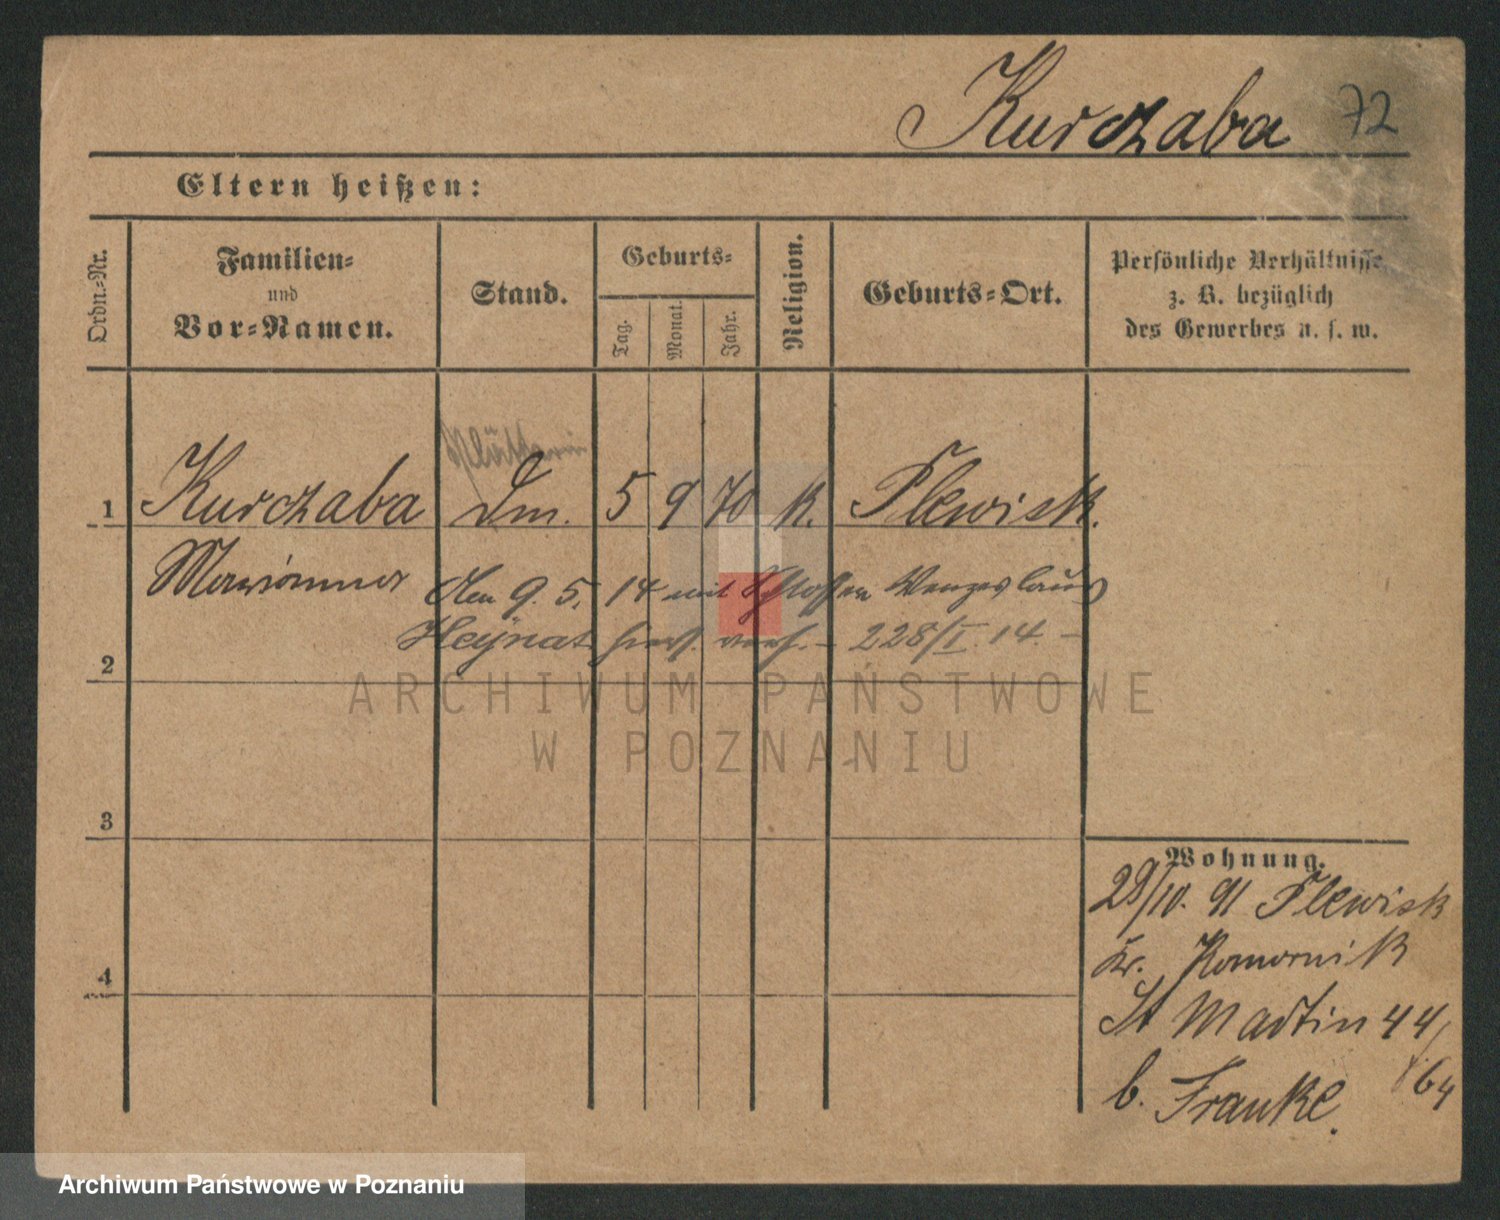 Kurczaba 72
Eltern heißen:
Ordn.-Nr.
Familien-
und
Vor-Namen.
Stand.
Geburts-
Tag.
Monat.
Jahr.
Religion.
Geburts-Ort.
Persönliche Verhältnisse
z. B. bezüglich
des Gewerbes u. s. w.
Plätterin
1 Kurczaba Dm. 5 9 70 k. Plewisk.
Marianna
den 9. 5. 14 mit Schlosser Wenzeslaus
Heynat hier verh. - 228/I. 14. -
2
ARCHIWUM PAŃSTWOWE
W POZNANIU
3
Wohnung.
28/10. 91 Plewisk
Kr. Komornik
4
St Martin 44/
64
b. Franke.
Archiwum Państwowe w Poznaniu